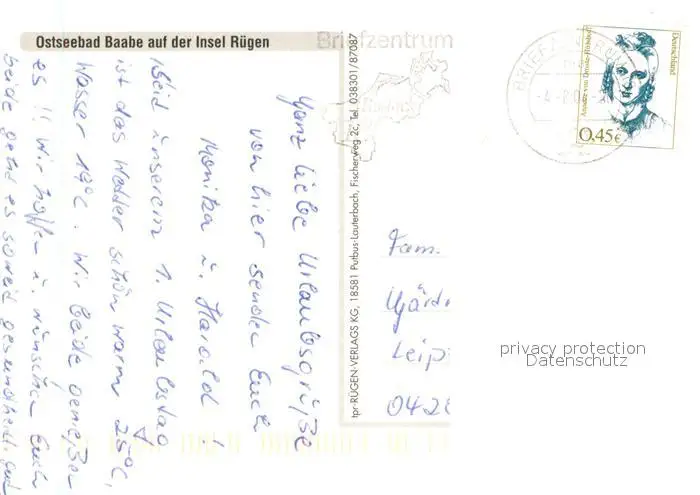 Ostseebad Baabe auf der Insel Rügen
Briefzentrum
BRIEFZENTRUM
Annette von Droste-Hülshoff
Deutschland
0,45€
tpr-RÜGEN-VERLAGS KG, 18581 Putbus-Lauterbach, Fischerweg 2c, Tel. 038301/87087
Ganz liebe Urlaubsgrüße
von hier senden Euch
Monika u. Harald!
Bei unserem 1. Urlaubstag
ist das Wetter schön warm 25°C,
Wasser 19°C. Wir beide genießen
es!! Wir hoffen u. wünschen Euch
beide geht es soweit gesundheitl. gut
Fam.
Leip
privacy protection
Datenschutz